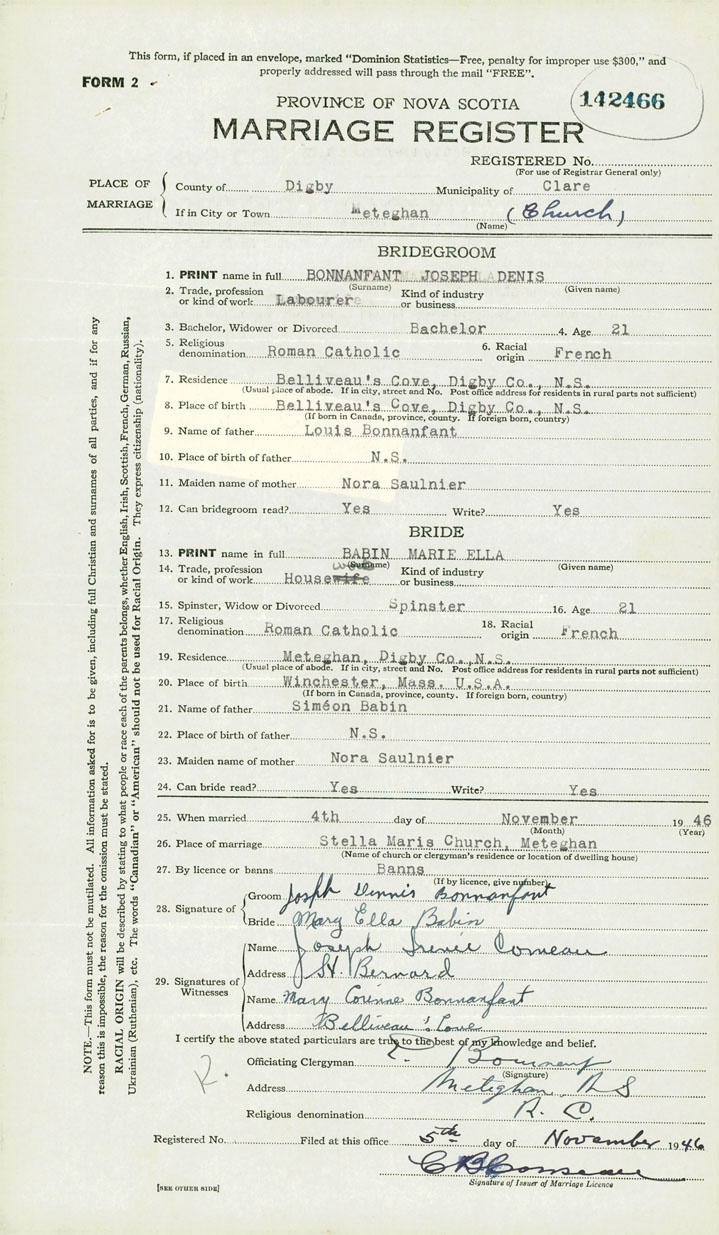 This form, if placed in an envelope, marked "Dominion Statistics—Free, penalty for improper use $300," and
properly addressed will pass through the mail "FREE".
FORM 2
142466
PROVINCE OF NOVA SCOTIA
MARRIAGE REGISTER
REGISTERED No.
(For use of Registrar General only)
PLACE OF MARRIAGE
County of Digby Municipality of Clare
If in City or Town Meteghan (Church)
(Name)
BRIDEGROOM
1. PRINT name in full BONNANFANT JOSEPH DENIS
(Surname) (Given name)
2. Trade, profession or kind of work Labourer Kind of industry or business
3. Bachelor, Widower or Divorced Bachelor 4. Age 21
5. Religious denomination Roman Catholic 6. Racial origin French
7. Residence Belliveau's Cove, Digby Co., N.S.
(Usual place of abode. If in city, street and No. Post office address for residents in rural parts not sufficient)
8. Place of birth Belliveau's Cove, Digby Co., N.S.
(If born in Canada, province, county. If foreign born, country)
9. Name of father Louis Bonnanfant
10. Place of birth of father N.S.
11. Maiden name of mother Nora Saulnier
12. Can bridegroom read? Yes Write? Yes
BRIDE
13. PRINT name in full BABIN MARIE ELLA
(Surname) (Given name)
14. Trade, profession or kind of work Housewife Kind of industry or business
15. Spinster, Widow or Divorced Spinster 16. Age 21
17. Religious denomination Roman Catholic 18. Racial origin French
19. Residence Meteghan, Digby Co., N.S.
(Usual place of abode. If in city, street and No. Post office address for residents in rural parts not sufficient)
20. Place of birth Winchester, Mass. U.S.A.
(If born in Canada, province, county. If foreign born, country)
21. Name of father Siméon Babin
22. Place of birth of father N.S.
23. Maiden name of mother Nora Saulnier
24. Can bride read? Yes Write? Yes
25. When married 4th day of November 1946
(Month) (Year)
26. Place of marriage Stella Maris Church, Meteghan
(Name of church or clergyman's residence or location of dwelling house)
27. By licence or banns Banns
(If by licence, give number)
28. Signature of
Groom Joseph Dennis Bonnanfant
Bride Mary Ella Babin
29. Signatures of Witnesses
Name Joseph Irenée Comeau
Address St. Bernard
Name Mary Corinne Bonnanfant
Address Belliveau's Cove
I certify the above stated particulars are true to the best of my knowledge and belief.
Officiating Clergyman Bourneuf
(Signature)
Address Meteghan, N S
Religious denomination R. C.
R.
Registered No. Filed at this office 5th day of November 1946
C B Comeau
Signature of Issuer of Marriage Licence
[SEE OTHER SIDE]
NOTE.—This form must not be mutilated. All information asked for is to be given, including full Christian and surnames of all parties, and if for any
reason this is impossible, the reason for the omission must be stated.
RACIAL ORIGIN will be described by stating to what people or race each of the parents belongs, whether English, Irish, Scottish, French, German, Russian,
Ukrainian (Ruthenian), etc. The words "Canadian" or "American" should not be used for Racial Origin. They express citizenship (nationality).